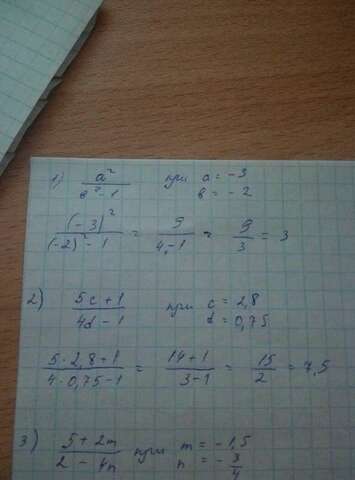 1) a² / (в² - 1) при a = -3
в = -2
(-3)² / ((-2)² - 1) = 9 / (4 - 1) = 9/3 = 3
2) (5c + 1) / (4d - 1) при c = 2,8
d = 0,75
(5 · 2,8 + 1) / (4 · 0,75 - 1) = (14 + 1) / (3 - 1) = 15/2 = 7,5
3) (5 + 2m) / (2 - 4n) при m = -1,5
n = -3/4